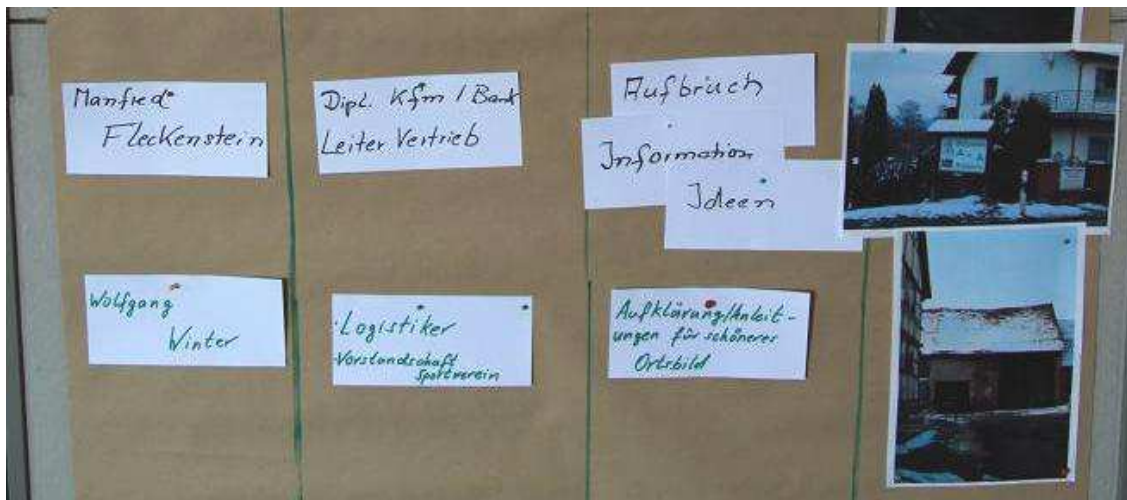 Manfred
Fleckenstein
Dipl. Kfm / Bank
Leiter Vertrieb
Aufbruch
Information
Ideen
Wolfgang
Winter
·Logistiker
·Vorstandschaft
Sportverein
Aufklärung/Anleit-
ungen für schönerer
Ortsbild